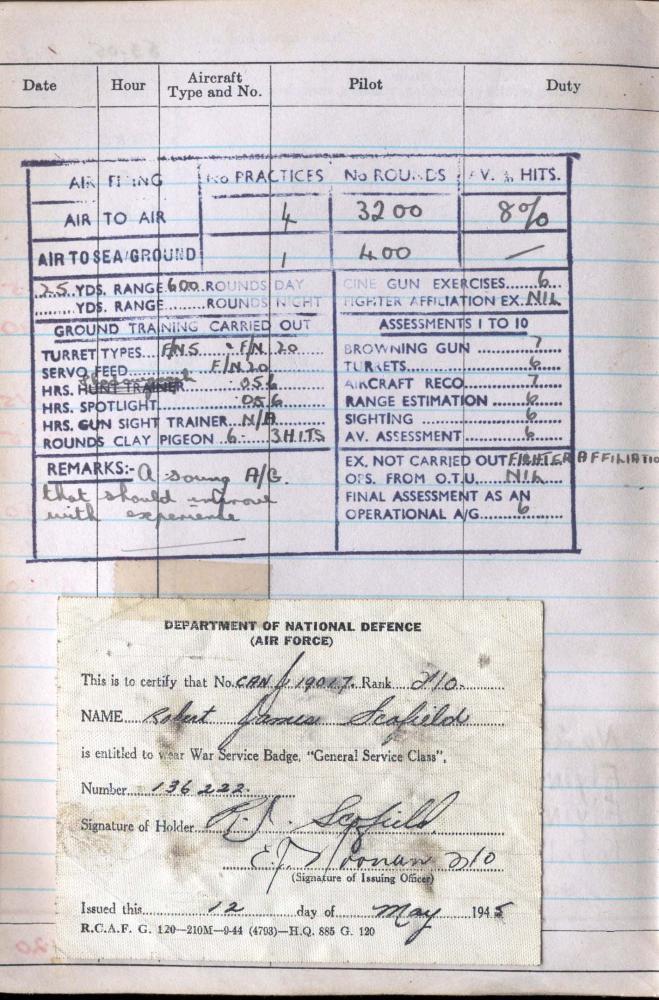 Date Hour Aircraft Type and No. Pilot Duty
AIR FIRING No PRACTICES No ROUNDS AV. % HITS.
AIR TO AIR 4 3200 8%
AIR TO SEA/GROUND 1 400 —
25 YDS. RANGE 600 ROUNDS DAY
YDS. RANGE ROUNDS NIGHT
GROUND TRAINING CARRIED OUT
TURRET TYPES F/N5 - F/N 20
SERVO FEED F/N20
HRS. HUNT TRAINER .05 6
HRS. SPOTLIGHT .05 6
HRS. GUN SIGHT TRAINER N/A
ROUNDS CLAY PIGEON 6- 3 HITS
REMARKS:- A sound A/G.
that should improve
with experience
CINE GUN EXERCISES 6
FIGHTER AFFILIATION EX. NIL
ASSESSMENTS 1 TO 10
BROWNING GUN 7
TURRETS 6
AIRCRAFT RECO. 7
RANGE ESTIMATION 6
SIGHTING 6
AV. ASSESSMENT 6
EX. NOT CARRIED OUT FIGHTER AFFILIATIO
OPS. FROM O.T.U. NIL
FINAL ASSESSMENT AS AN
OPERATIONAL A/G 6
DEPARTMENT OF NATIONAL DEFENCE
(AIR FORCE)
This is to certify that No. CAN J 19017. Rank P/O.
NAME Robert James Scofield
is entitled to wear War Service Badge, "General Service Class",
Number 136222.
Signature of Holder R.J. Scofield
(Signature of Issuing Officer)
Issued this 12 day of May 1945
R.C.A.F. G. 120—210M—9-44 (4793)—H.Q. 885 G. 120